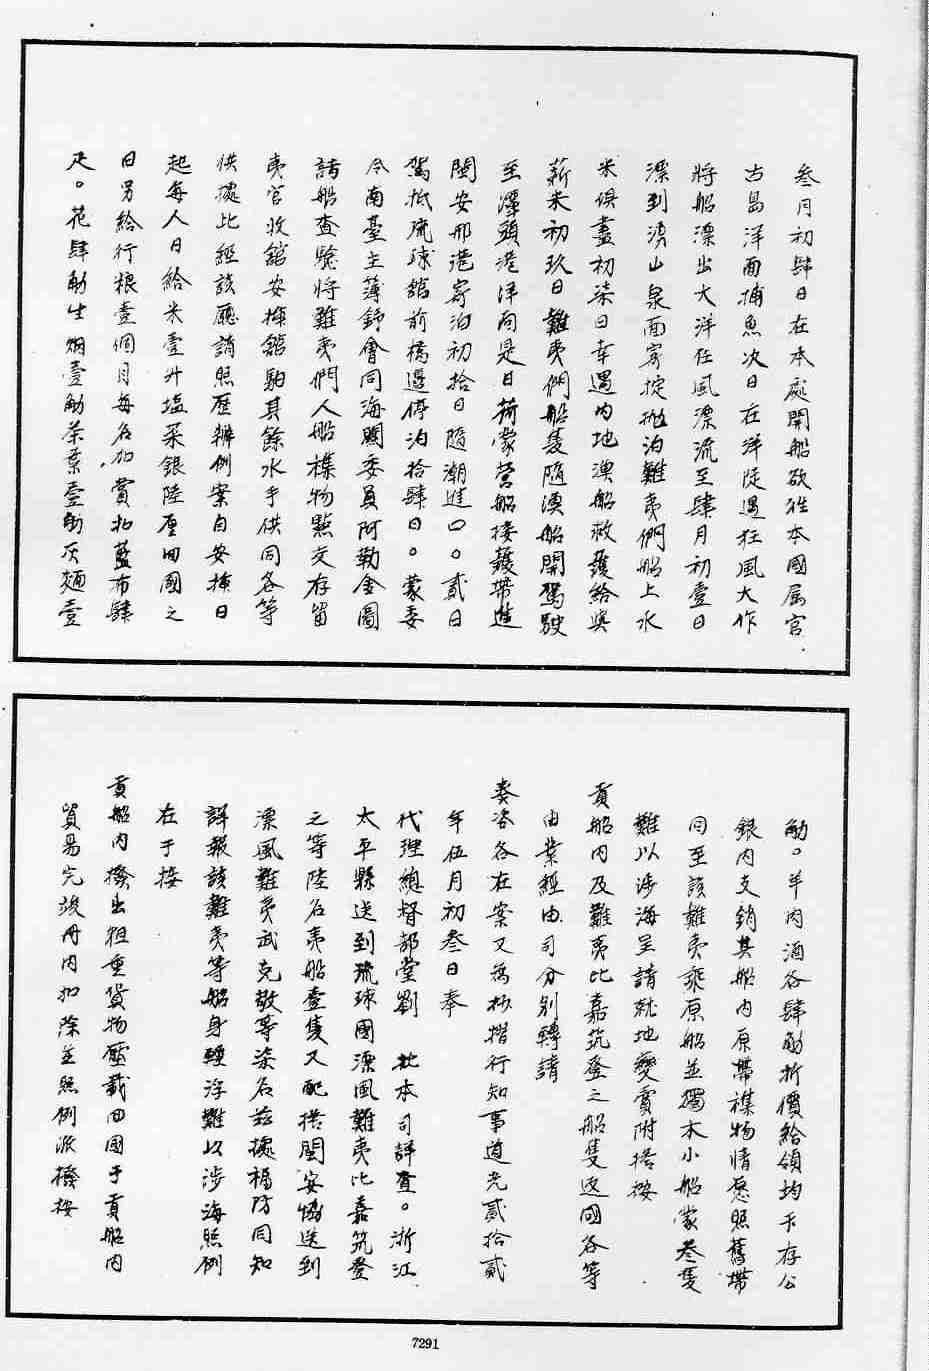 叁月初肆日在本處開船欲往本國屬宮
古島洋面捕魚次日在洋陡遇狂風大作
將船漂出大洋任風漂流至肆月初壹日
漂到湧山泉面寄椗拋泊難夷們船上水
米俱盡初柒日幸遇内地漁船救護給與
薪米初玖日難夷們船隻隨漁船開駕駛
至澤頭港洋面是日荷蒙營船接護帶進
閩安邢港寄泊初拾日隨潮進口。貳日
駕抵琉球館前橋邊停泊拾肆日。蒙委
令南臺主薄鈰會同海關委員阿勒金圖
詣船查驗將難夷們人船襍物點交存留
夷官收舘安揷舘駅其餘水手供同各等
供據比經該廳請照歷辦例案自安揷日
起每人日給米壹升塩菜銀陸厘回國之
日另給行粮壹個月每名加賞扣藍布肆
疋。花肆觔生烟壹觔茶葉壹觔灰麵壹
觔。羊肉酒各肆觔折價給領均于存公
銀内支銷其船内原帶襍物情愿照舊帶
回至該難夷乘原船並獨木小船蒙叁隻
難以涉海呈請就地變賣附搭按
貢船内及難夷比嘉筑登之船隻返國各等
由業經由司分别轉請
奏咨各在案又爲抄摺行知事道光貳拾貳
年伍月初叁日奉
代理總督部堂劉 批本司詳查。浙江
太平縣送到琉球國漂風難夷比嘉筑登
之等陸名夷船壹隻又配搭閩安協送到
漂風難夷武克敬等柒名玆據福防同知
詳報該難夷等船身輕浮難以涉海照例
在于接
貢船内撥出粗重貨物壓載回國于貢船内
貿易完竣冊内扣除並照例派撥按
7291